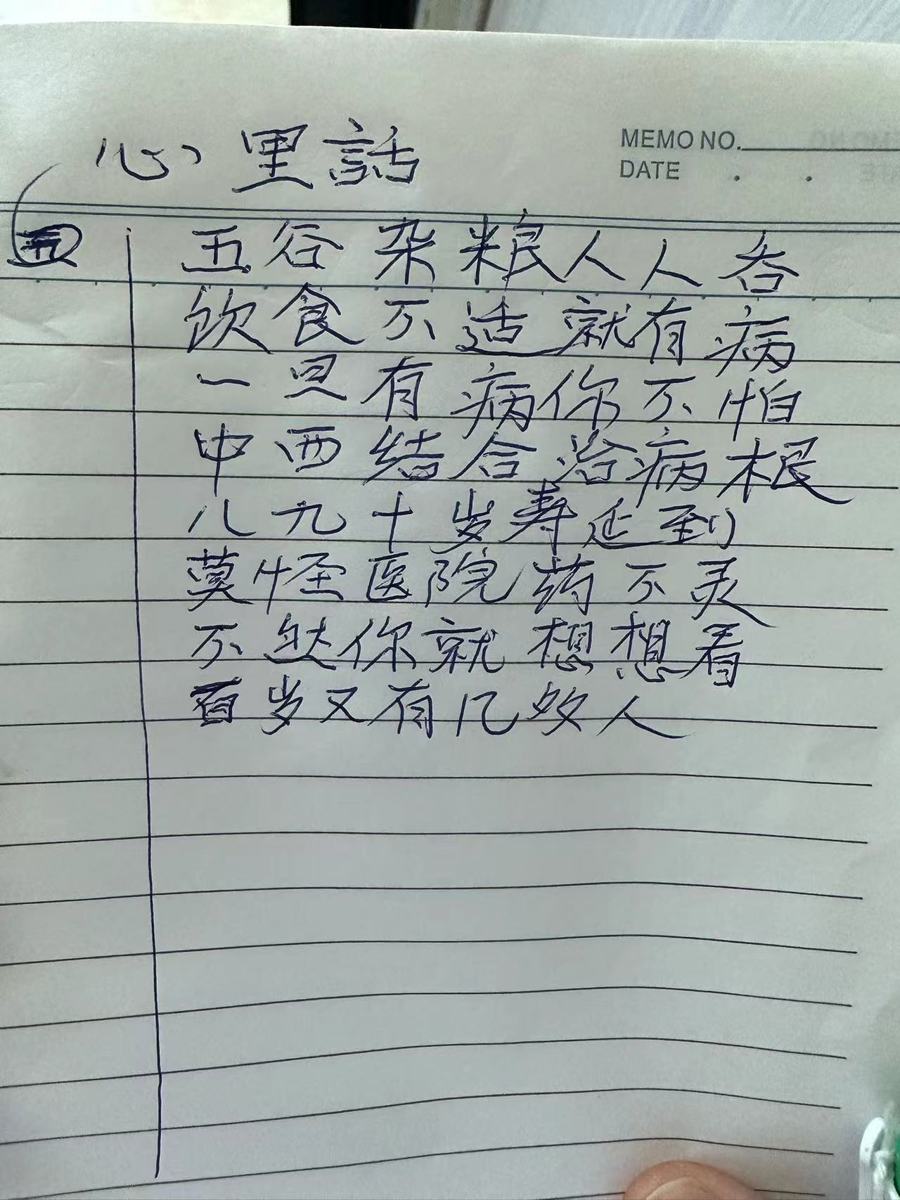 心里話
MEMO NO.
DATE . .
五谷杂粮人人吞
饮食不适就有病
一旦有病你不怕
中西结合治病根
八九十岁寿延到
莫怪医院药不灵
不然你就想想看
百岁又有几效人